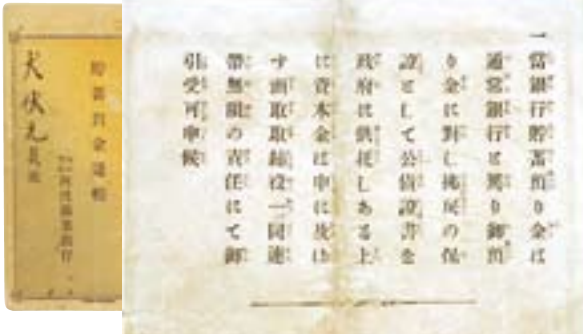 一當銀行貯蓄預り金は
通常銀行と異り御預
り金に對し拂戻の保
證として公債證書を
政府に供托しある上
に資本金は申に及ば
す頭取取締役一同連
帶無限の責任にて御
引受可申候
貯蓄預金通帳
阿波商業銀行
犬伏元貞殿